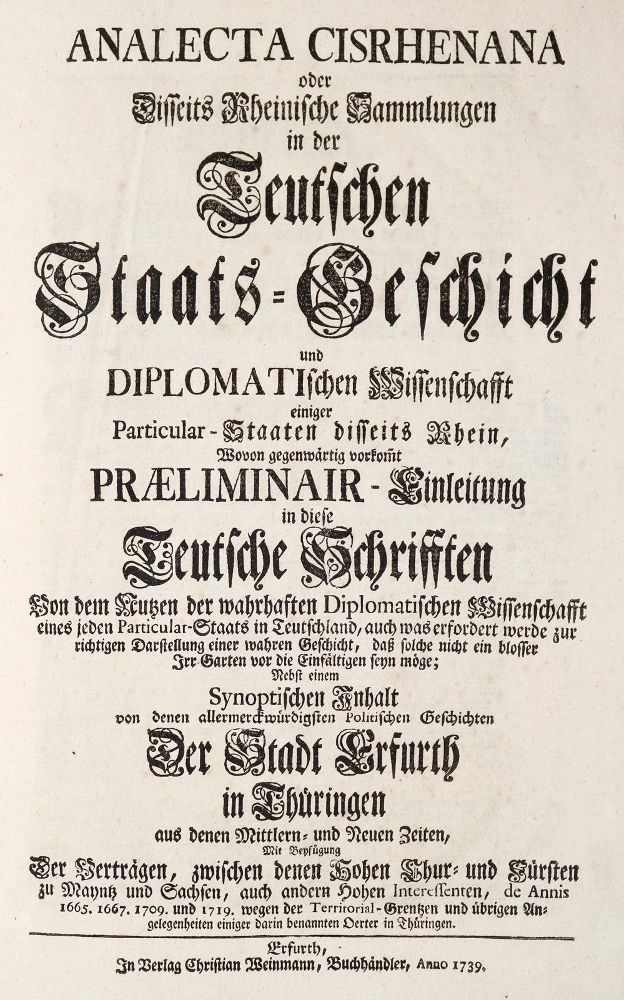 ANALECTA CISRHENANA
oder
Disseits Rheinische Sammlungen
in der
Teutschen
Staats-Geschicht
und
DIPLOMATIschen Wissenschafft
einiger
Particular-Staaten disseits Rhein,
Wovon gegenwärtig vorkom̃t
PRÆLIMINAIR-Einleitung
in diese
Teutsche Schrifften
Von dem Nutzen der wahrhaften Diplomatischen Wissenschafft
eines jeden Particular-Staats in Teutschland, auch was erfordert werde zur
richtigen Darstellung einer wahren Geschicht, daß solche nicht ein blosser
Irr-Garten vor die Einfältigen seyn möge;
Nebst einem
Synoptischen Inhalt
von denen allermerckwürdigsten Politischen Geschichten
Der Stadt Erfurth
in Thüringen
aus denen Mittlern- und Neuen Zeiten,
Mit Beyfügung
Der Verträgen, zwischen denen Hohen Chur- und Fürsten
zu Mayntz und Sachsen, auch andern Hohen Interessenten, de Annis
1665. 1667. 1709. und 1719. wegen der Territorial-Grentzen und übrigen An-
gelegenheiten einiger darin benannten Oerter in Thüringen.
Erfurth,
In Verlag Christian Weinmann, Buchhändler, Anno 1739.